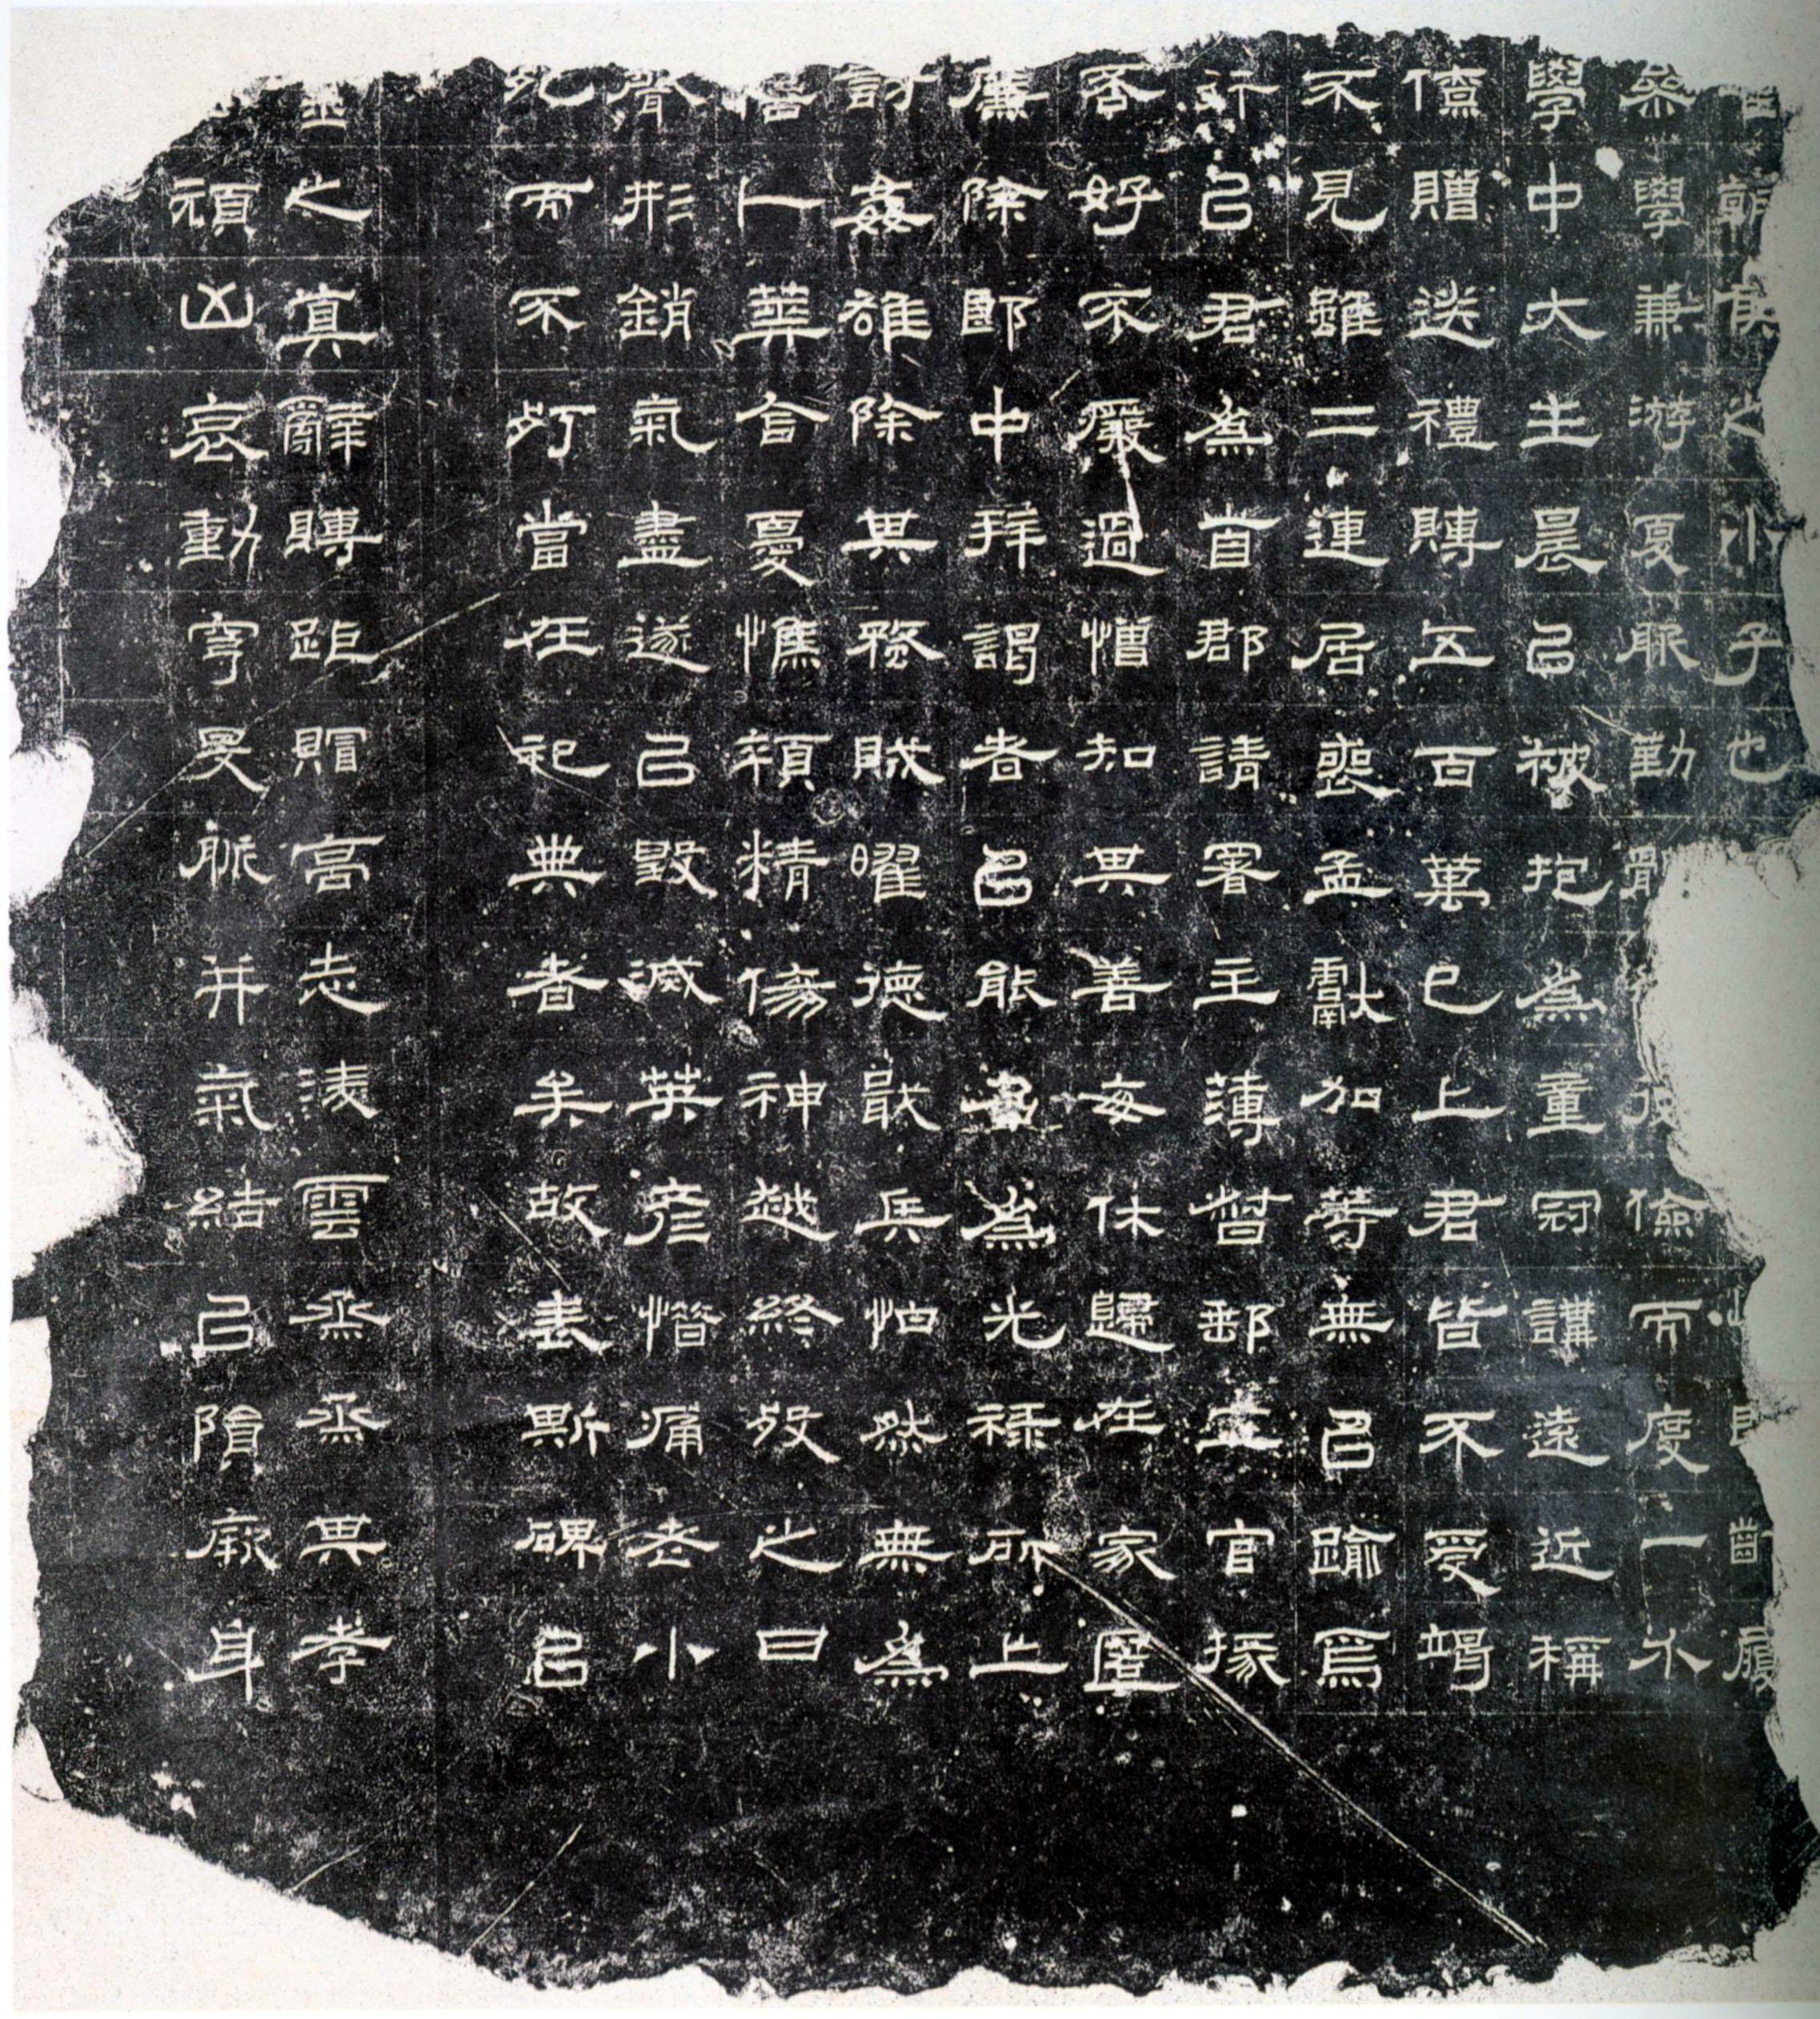 朝侯之小子也齒履
參學兼游夏服勤儉而度一介
學中大主晨以被抱為童冠講遠近稱
僚贈送禮賻五百萬已上君皆不受竭
不見雖二連居喪孟獻加等無以踰焉
行以君為首郡請署主薄督郵五官掾
否好不廢過憎知其善每休歸在家匿
廉除郎中拜謁者以能名為光祿所上
討姦雄除其蝥賊曜德戢兵怕然無為
卜葬含憂憔顇精傷神越終歿之曰
脊形銷氣盡遂以毀滅英彥惜痛老小
死而不朽當在祀典者矣故表斯碑以
之真辭賻距赗高志淩雲烝烝其孝
頑凶哀動穹旻脈并氣結以隕厥身